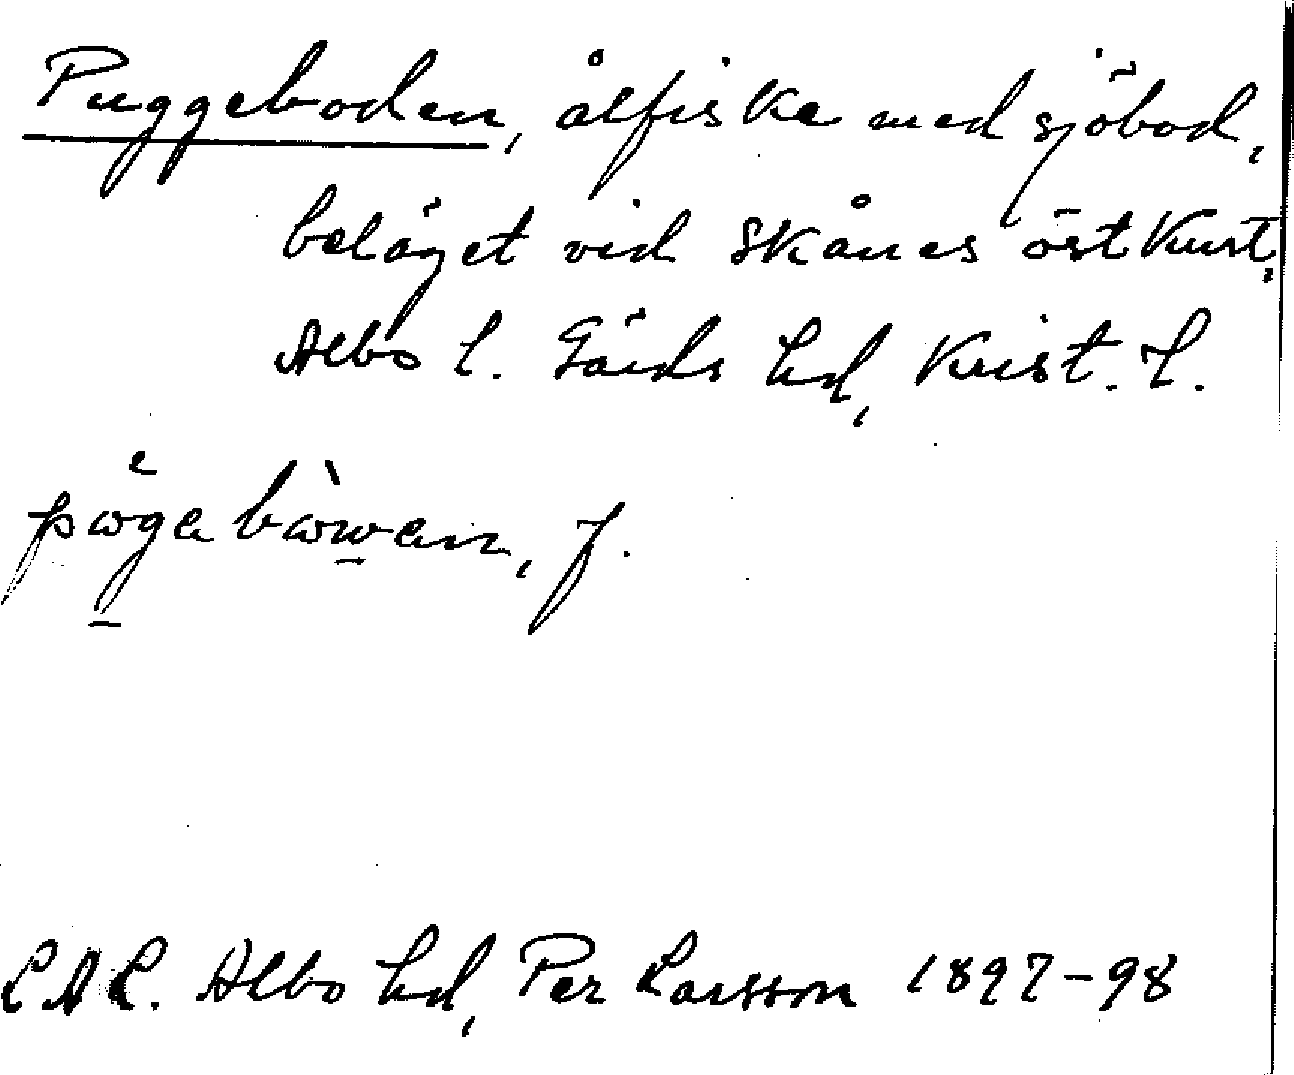 Puggeboden, ålfiske med sjöbod,
beläget vid Skånes östkust,
Albo l. Gärds hd, Krist. l.
f.
LAL. Albo hd, Per Larsson 1897-98